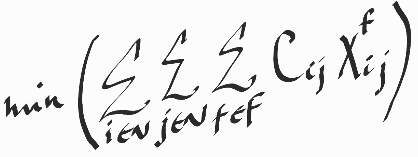 min ( ∑_{i∈N} ∑_{j∈N} ∑_{f∈F} C_{ij} X_{ij}^{f} )